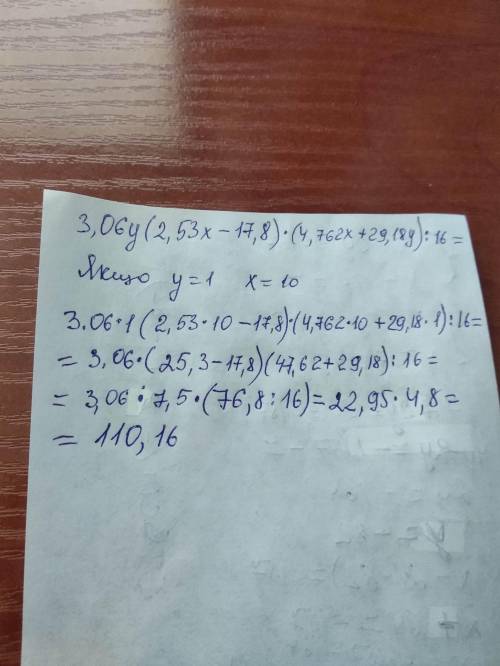 3,06y(2,53x-17,8)·(4,762x+29,18y):16=
Якщо y=1 x=10
3.06·1(2,53·10-17,8)·(4,762·10+29,18·1):16=
=3,06·(25,3-17,8)(47,62+29,18):16=
=3,06·7,5·(76,8:16)=22,95·4,8=
=110,16